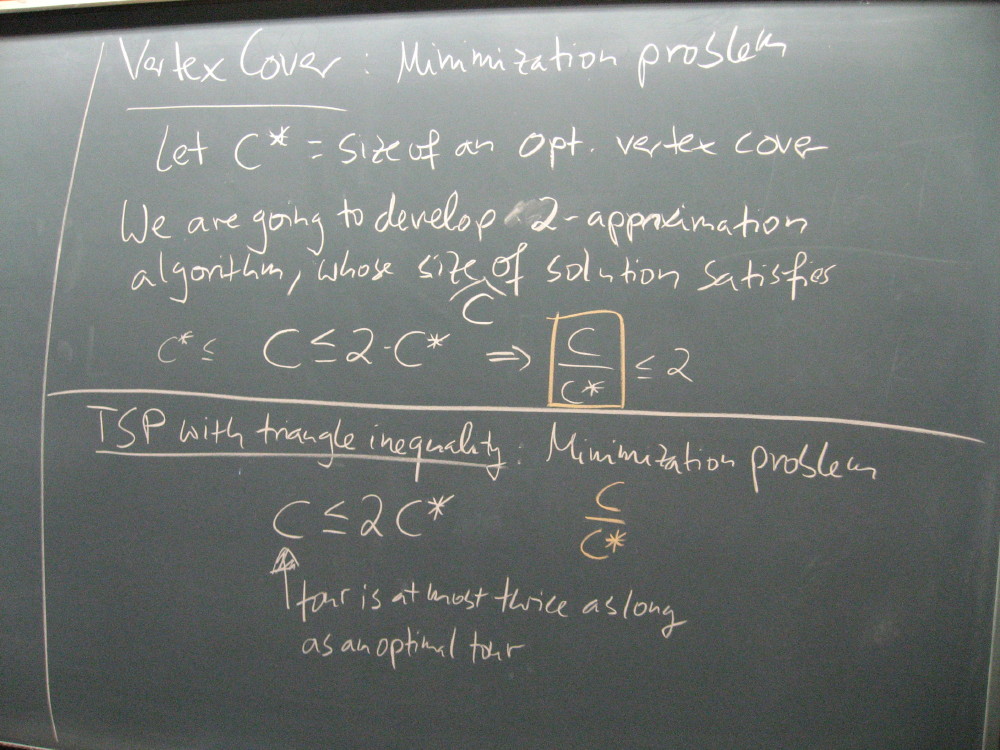 Vertex Cover : Minimization problem
Let C* = size of an opt. vertex cover
We are going to develop 2-approximation
algorithm, whose size of solution satisfies
C
C* ≤ C ≤ 2·C* ⇒ C/C* ≤ 2
TSP with triangle inequality : Minimization problem
C ≤ 2C* C/C*
tour is at most twice as long
as an optimal tour